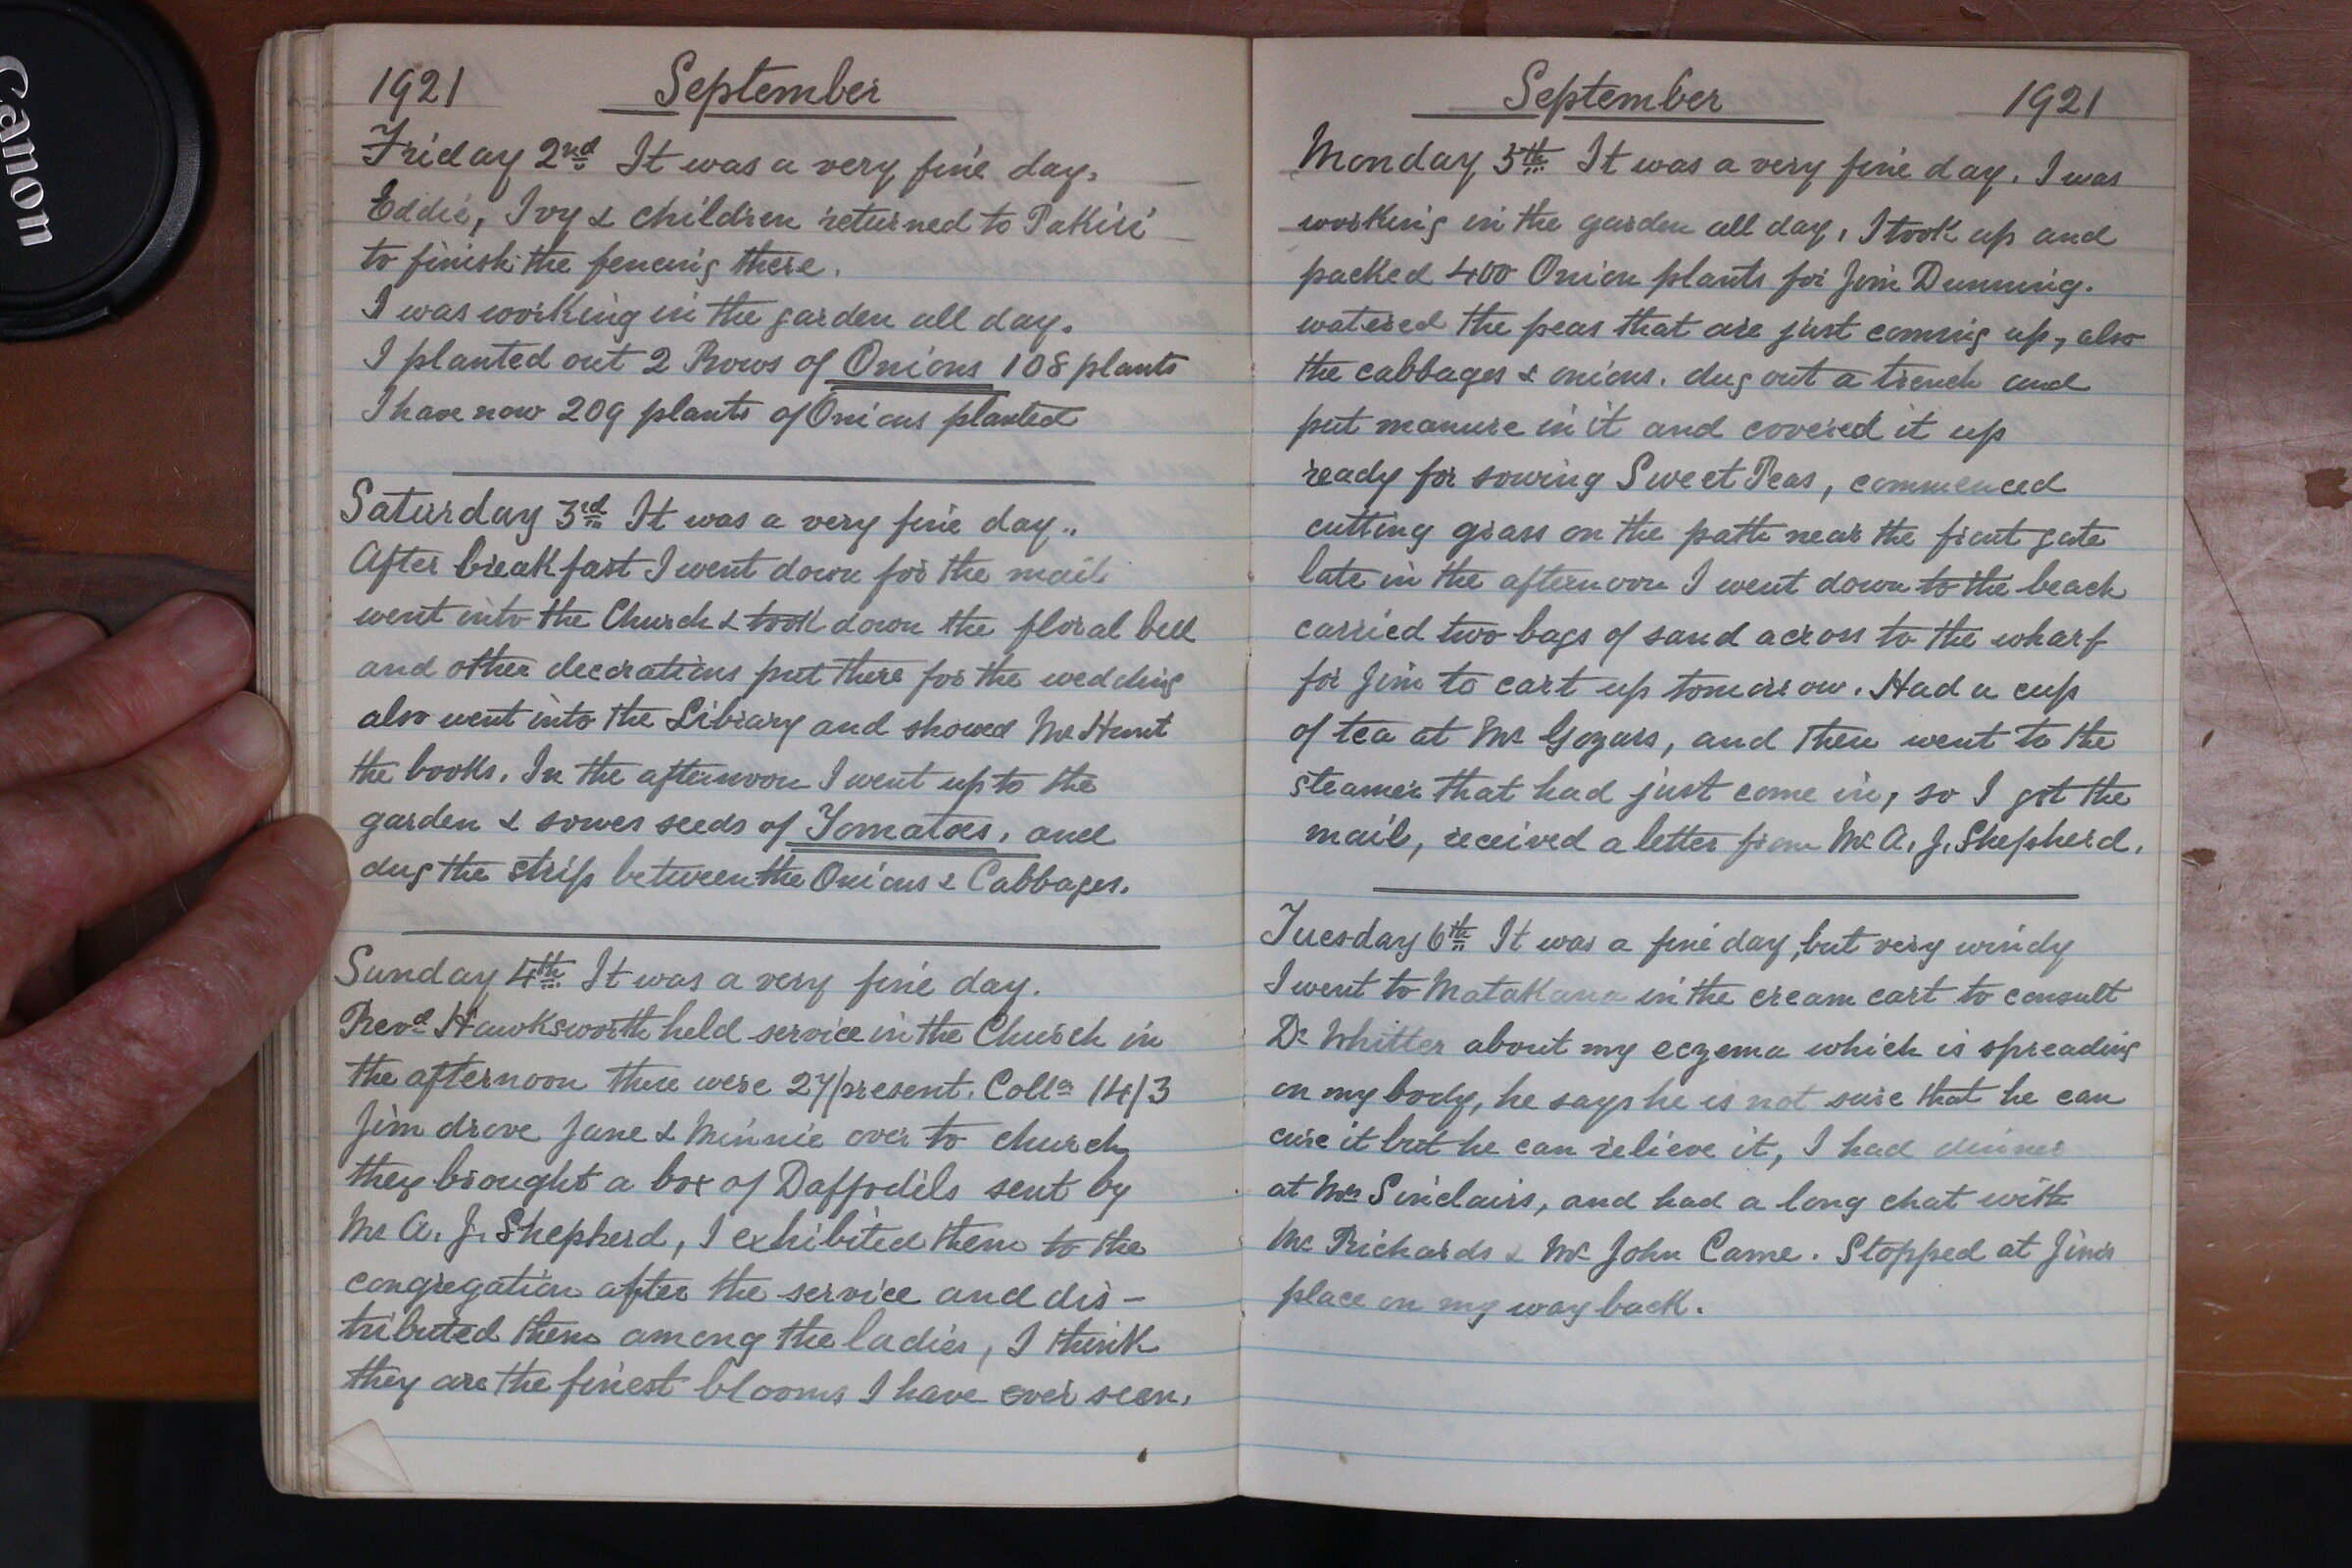 Canon
1921 September
Friday 2nd It was a very fine day.
Eddie, Ivy & children returned to Pakiri
to finish the fencing there.
I was working in the garden all day.
I planted out 2 Rows of Onions 108 plants
I have now 209 plants of Onions planted
Saturday 3rd It was a very fine day.
After breakfast I went down for the mail
went into the Church & took down the floral bell
and other decorations put there for the wedding
also went into the Library and showed Mr Hunt
the books. In the afternoon I went up to the
garden & sowes seeds of Tomatoes, and
dug the strip between the Onions & Cabbages.
Sunday 4th It was a very fine day.
Revd Hawksworth held service in the Church in
the afternoon there were 27 present. Colln 14/3
Jim drove Jane & Minnie over to church
they brought a box of Daffodils sent by
Mr A. J. Shepherd, I exhibited them to the
congregation after the service and dis-
tributed them among the ladies, I think
they are the finest blooms I have ever seen.
September 1921
Monday 5th It was a very fine day. I was
working in the garden all day, I took up and
packed 400 Onion plants for Jim Dunning.
watered the peas that are just coming up, also
the cabbages & onions. dug out a trench and
put manure in it and covered it up
ready for sowing Sweet Peas, commenced
cutting grass on the path near the front gate
late in the afternoon I went down to the beach
carried two bags of sand across to the wharf
for Jim to cart up tomorrow. Had a cup
of tea at Mr Gozars, and then went to the
steamer that had just come in, so I got the
mail, received a letter from Mr A. J. Shepherd.
Tuesday 6th It was a fine day, but very windy
I went to Matakana in the cream cart to consult
Dr Whitter about my eczema which is spreading
on my body, he says he is not sure that he can
cure it but he can relieve it, I had dinner
at Mrs Sinclairs, and had a long chat with
Mr Richards & Mr John Came. Stopped at Jims
place on my way back.